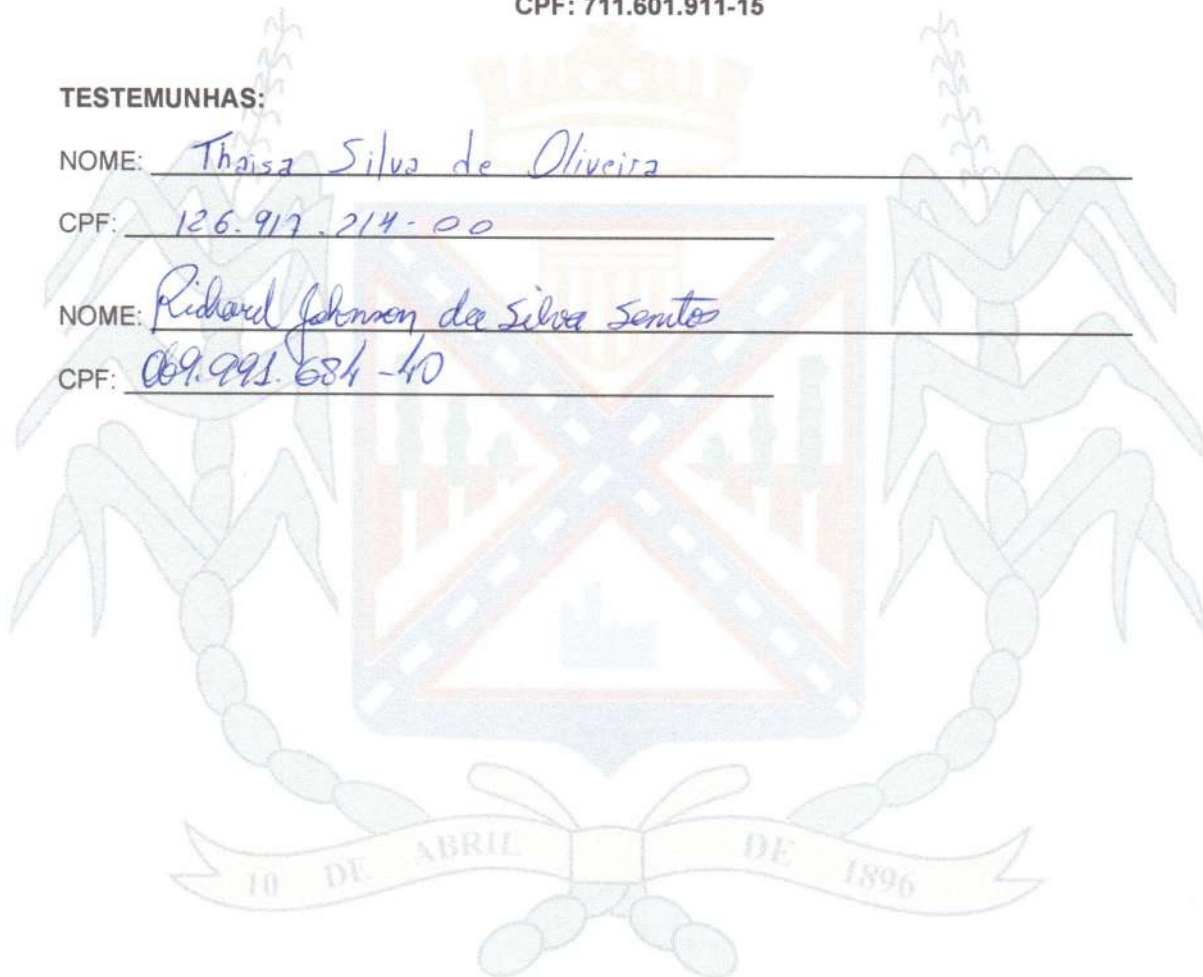 CPF: 711.601.911-15
TESTEMUNHAS:
NOME: Thaisa Silva de Oliveira
CPF: 126.917.214-00
NOME: Richard Johnson da Silva Santos
CPF: 069.991.684-40
10 DE ABRIL DE 1896